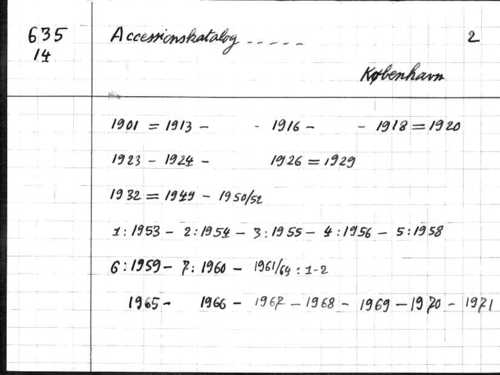 635 Accessionskatalog ..... 2
14
København
1901 = 1913 - - 1916 - - 1918 = 1920
1923 - 1924 - 1926 = 1929
1932 = 1949 - 1950/52
1:1953 - 2:1954 - 3:1955 - 4:1956 - 5:1958
6:1959 - 7:1960 - 1961/64:1-2
1965 - 1966 - 1967 - 1968 - 1969 - 1970 - 1971